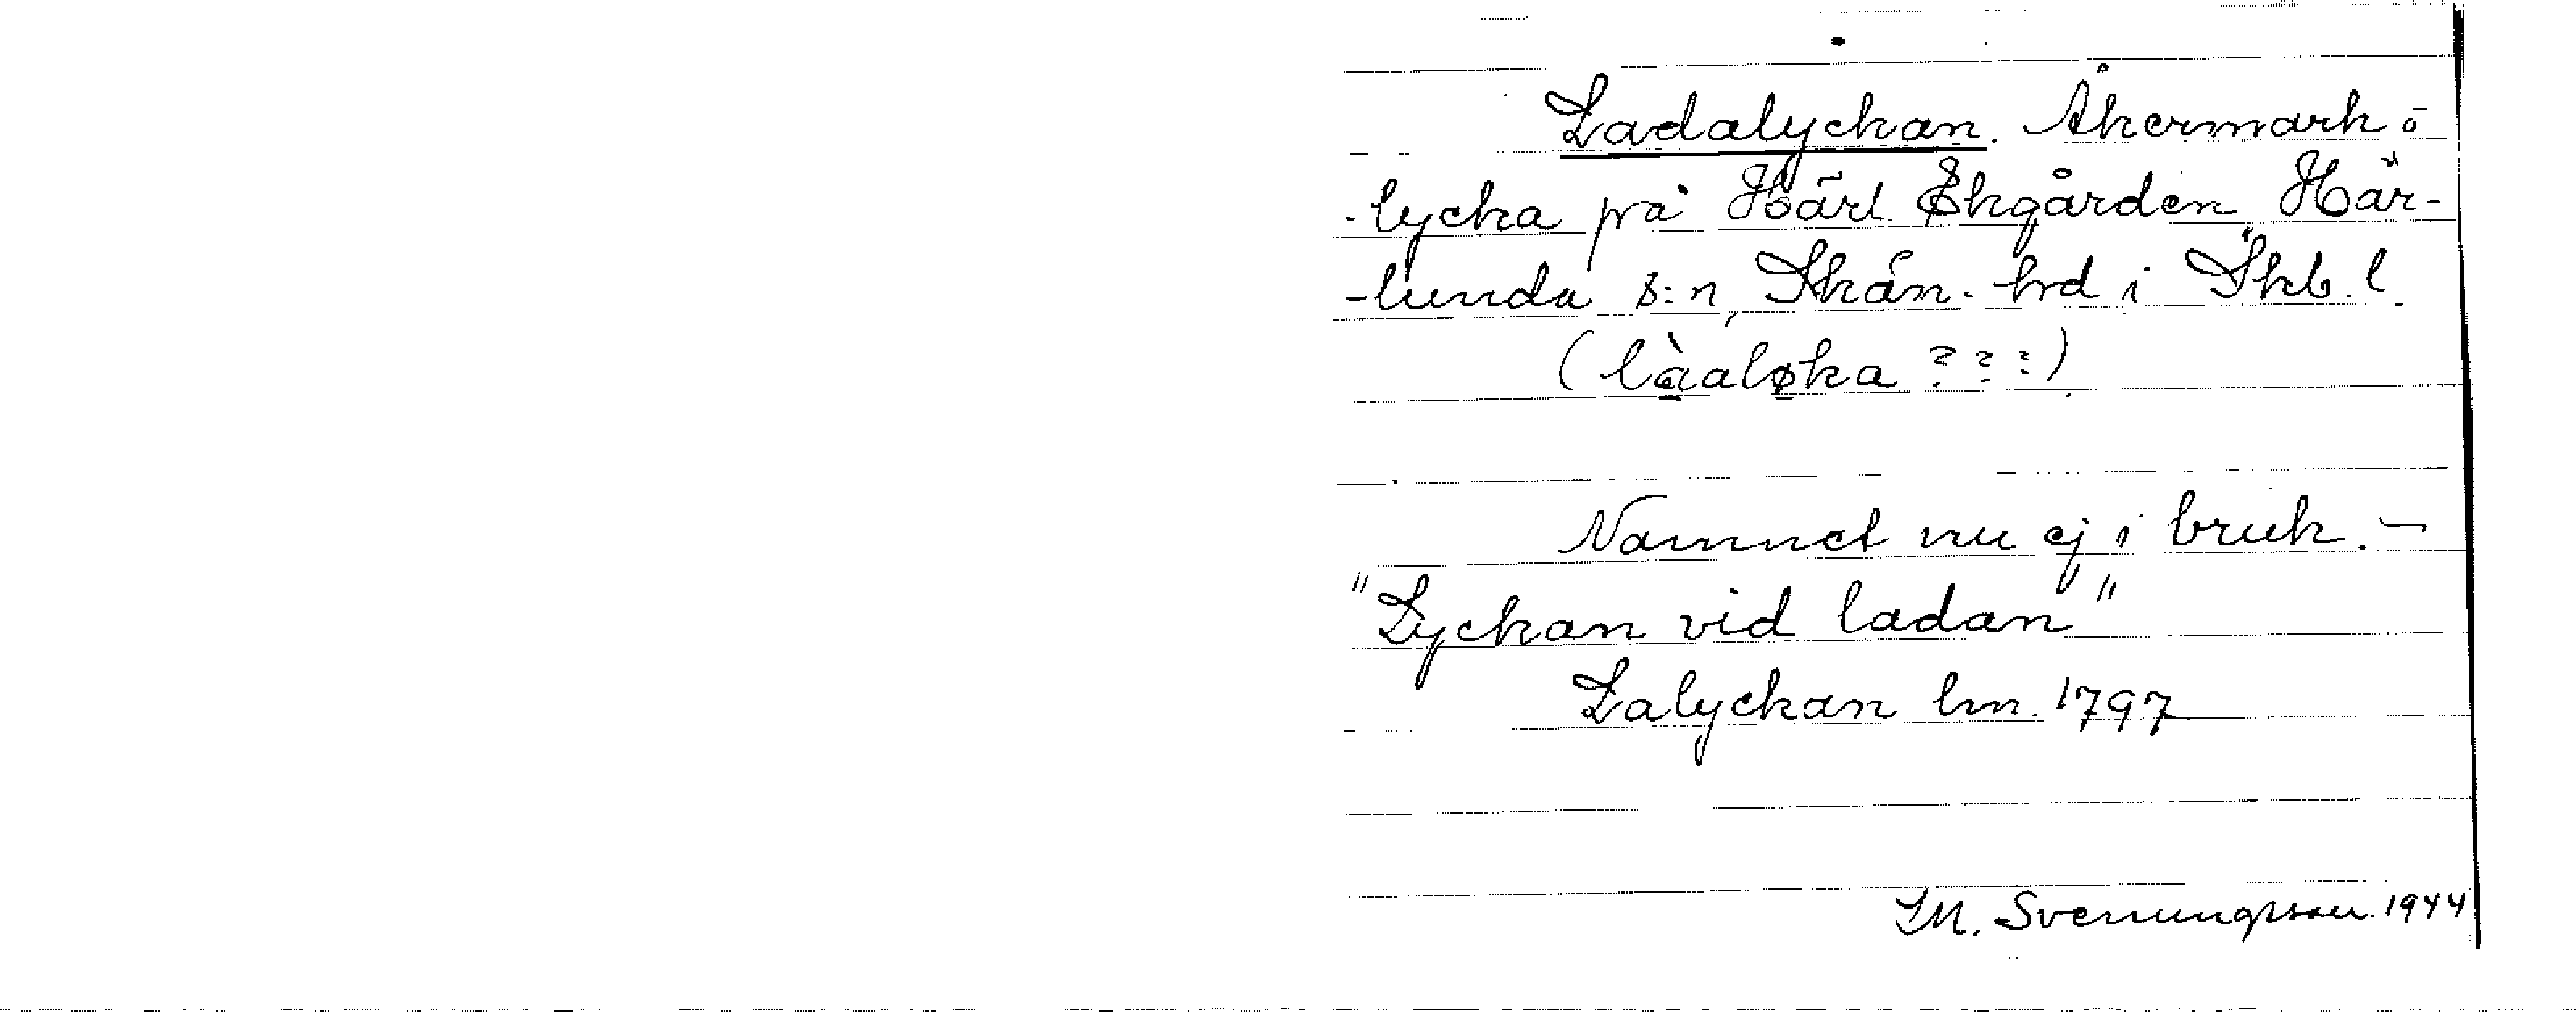 Ladalyckan. Åkermark o
lycka på Härl. Ekgården Här-
-lunda s:n, Skån. hrd i Skb. l
(làaløka ? ? ?)
Namnet nu ej i bruk. —
"Lyckan vid ladan"
Lalyckan lm. 1797
M. Svenungsson. 1944